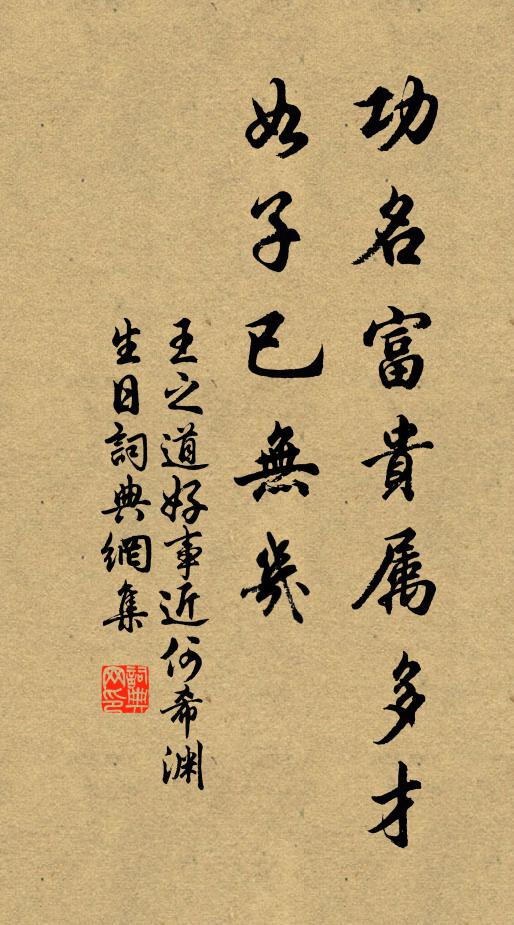 功名富貴属多才
如子已無幾
王之道好事近何希渊
生日詞典網集
詞典
网印